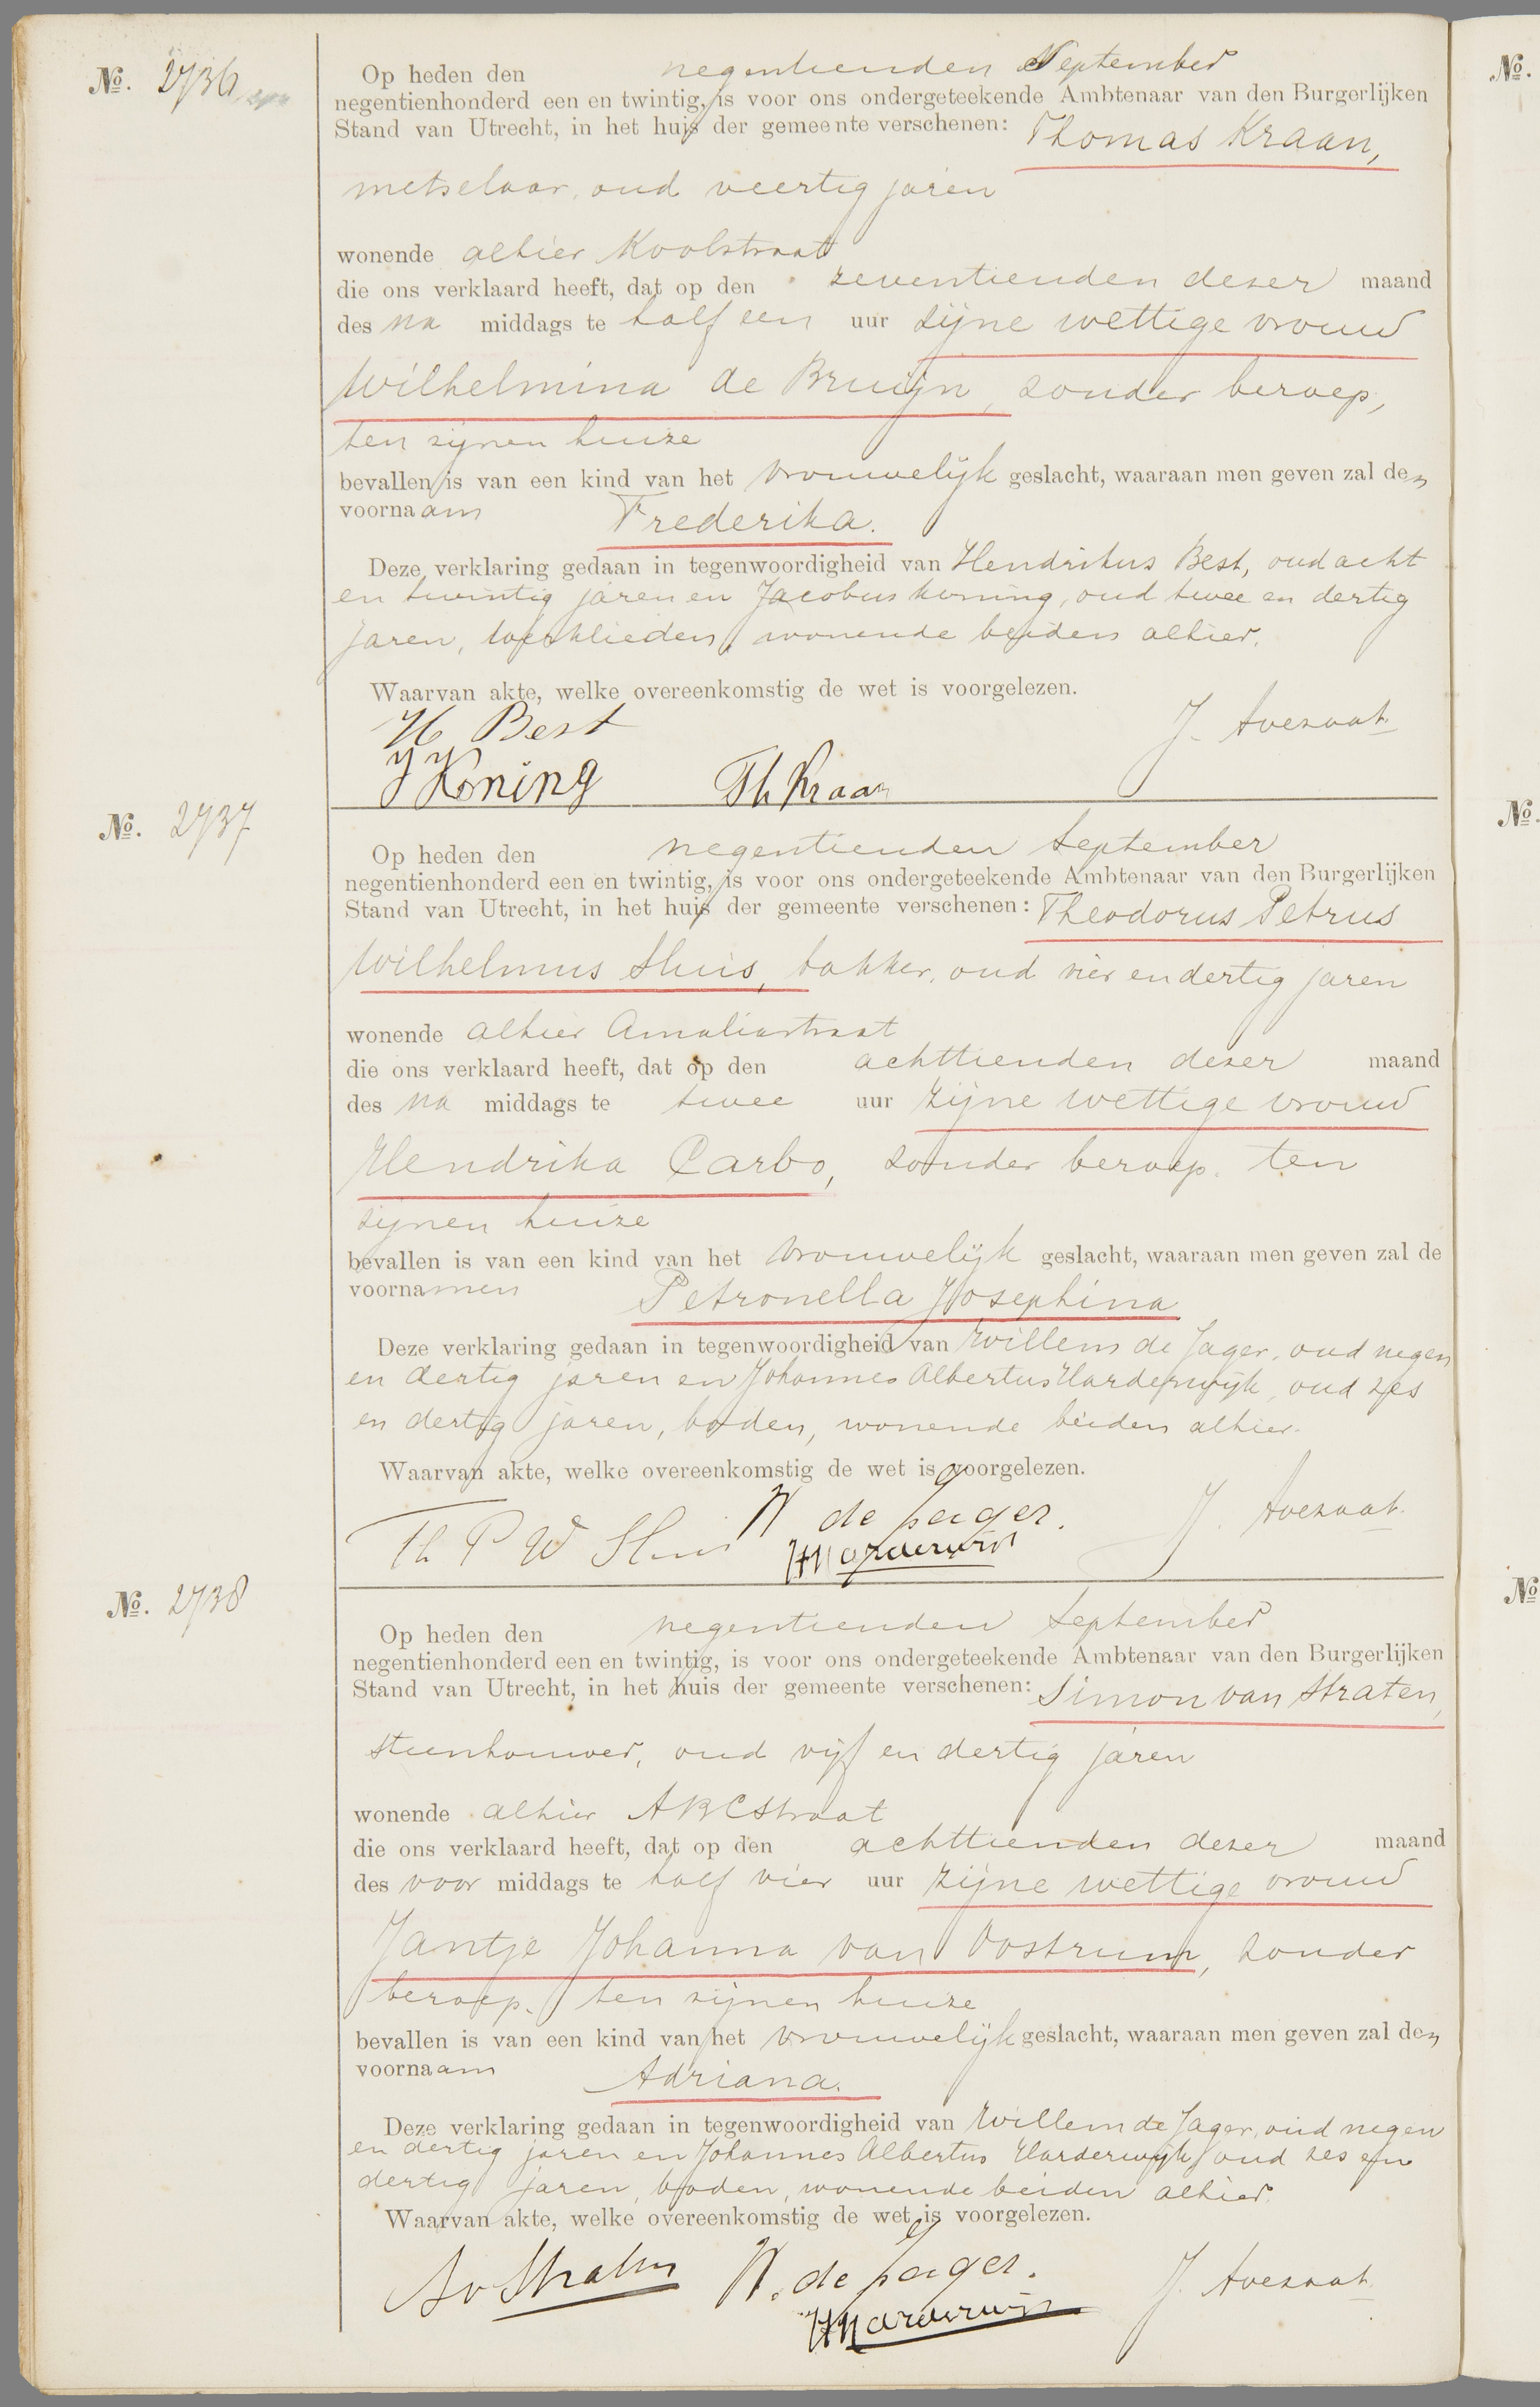 No. 2736
Op heden den negentienden September
negentienhonderd een en twintig, is voor ons ondergeteekende Ambtenaar van den Burgerlijken
Stand van Utrecht, in het huis der gemeente verschenen: Thomas Kraan,
metselaar, oud veertig jaren
wonende alhier Koolstraat
die ons verklaard heeft, dat op den zeventienden dezer maand
des na middags te half een uur zijne wettige vrouw
Wilhelmina de Bruijn, zonder beroep,
ten zijnen huize
bevallen is van een kind van het vrouwelijk geslacht, waaraan men geven zal den
voornaam Frederika.
Deze verklaring gedaan in tegenwoordigheid van Hendrikus Best, oud acht
en twintig jaren en Jacobus Koning, oud twee en dertig
jaren, werklieden, wonende beiden alhier.
Waarvan akte, welke overeenkomstig de wet is voorgelezen.
H Best
J Koning Th Kraan J. Avezaat
No. 2737
Op heden den negentienden September
negentienhonderd een en twintig, is voor ons ondergeteekende Ambtenaar van den Burgerlijken
Stand van Utrecht, in het huis der gemeente verschenen: Theodorus Petrus
Wilhelmus Sluis, bakker, oud vier en dertig jaren
wonende alhier Amaliastraat
die ons verklaard heeft, dat op den achttienden dezer maand
des na middags te twee uur zijne wettige vrouw
Hendrika Carbo, zonder beroep, ten
zijnen huize
bevallen is van een kind van het vrouwelijk geslacht, waaraan men geven zal de
voornamen Petronella Josephina
Deze verklaring gedaan in tegenwoordigheid van Willem de Jager, oud negen
en dertig jaren en Johannes Albertus Harderwijk, oud zes
en dertig jaren, boden, wonende beiden alhier.
Waarvan akte, welke overeenkomstig de wet is voorgelezen.
Th P W Sluis W de Jager. J. Avezaat
Harderwijk
No. 2738
Op heden den negentienden September
negentienhonderd een en twintig, is voor ons ondergeteekende Ambtenaar van den Burgerlijken
Stand van Utrecht, in het huis der gemeente verschenen: Simon van Straten,
steenhouwer, oud vijf en dertig jaren
wonende alhier ABCstraat
die ons verklaard heeft, dat op den achttienden dezer maand
des voor middags te half vier uur zijne wettige vrouw
Jantje Johanna van Oostrum, zonder
beroep, ten zijnen huize
bevallen is van een kind van het vrouwelijk geslacht, waaraan men geven zal den
voornaam Adriana.
Deze verklaring gedaan in tegenwoordigheid van Willem de Jager, oud negen
en dertig jaren en Johannes Albertus Harderwijk, oud zes en
dertig jaren, boden, wonende beiden alhier.
Waarvan akte, welke overeenkomstig de wet is voorgelezen.
S v Straten W. de Jager. J. Avezaat
Harderwijk
No.
No.
No